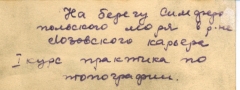 На берегу Симферо
польского моря в р-не
Лозовского карьера
I курс практика по
топографии.